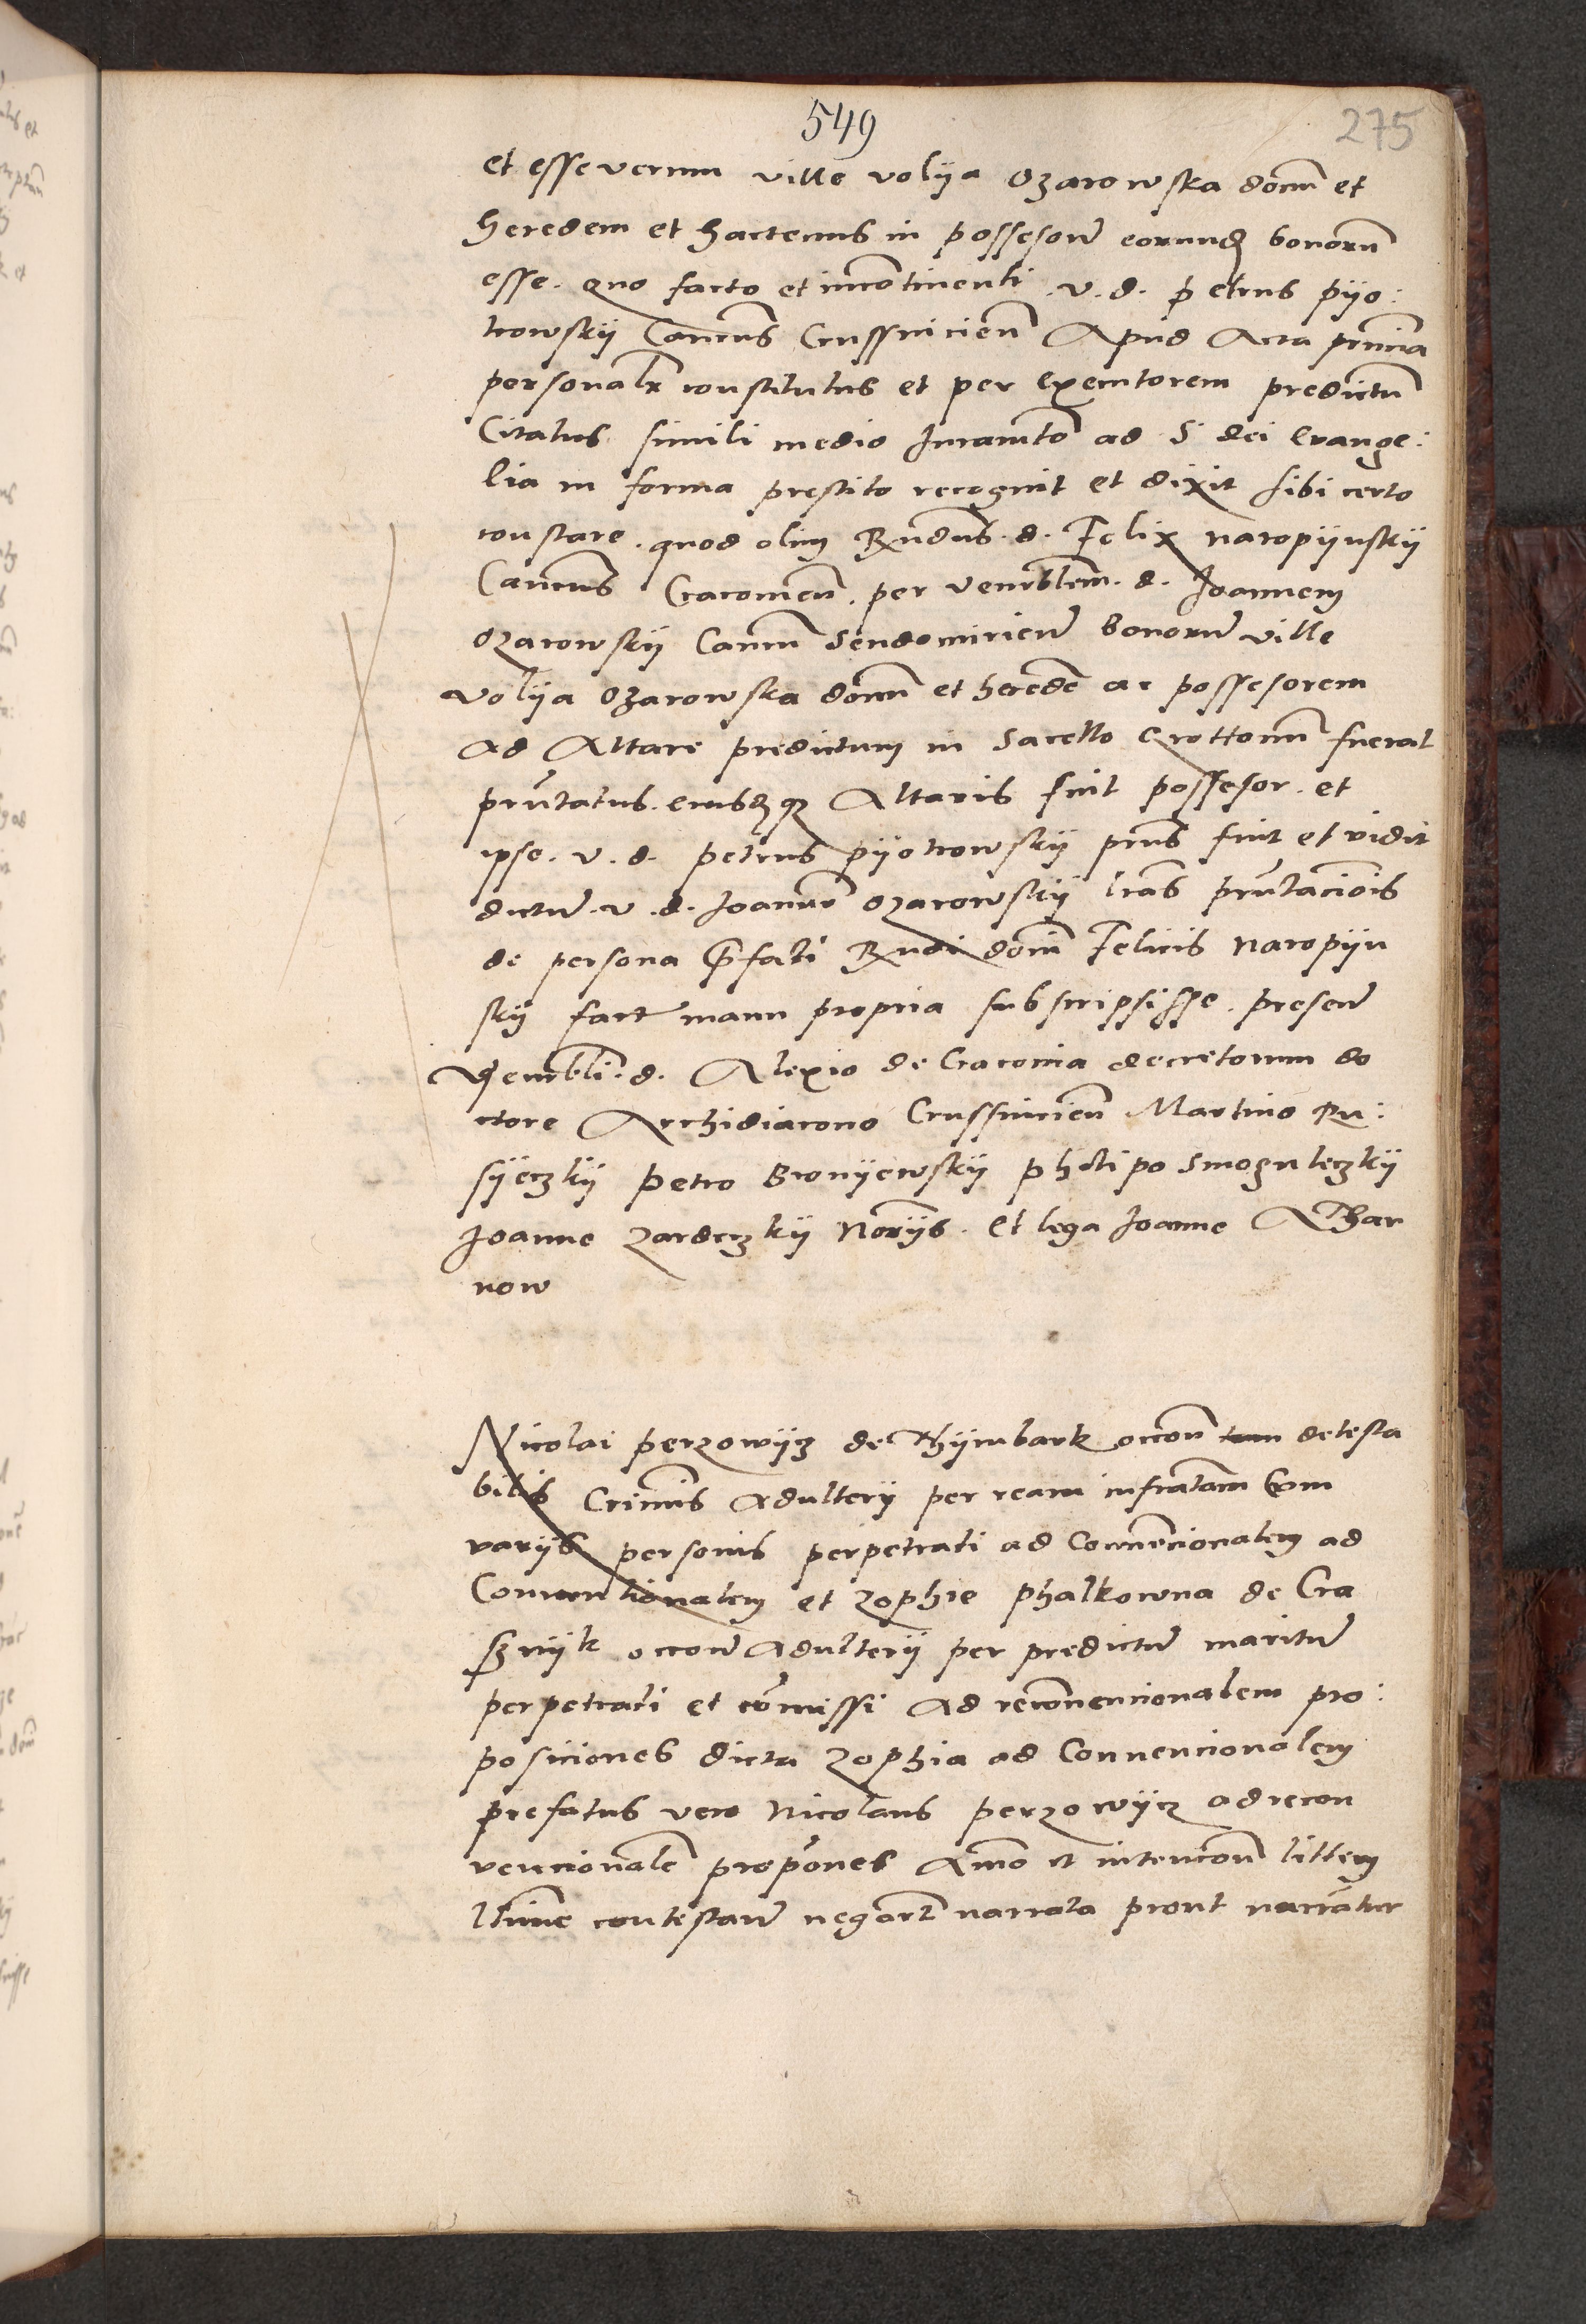 549
275
et esse verum ville volija Ozarowska dom̅ et
heredem et hactenus in possesoe̅ eorund bonoru̅
esse. quo facto et inco̅tinenti v. d. petrus pijo:
trowskij Cano̅cus Crussvicien̅ Apud Acta prn̅cia
personalr constitutus et per executorem predictu̅
Citatus simili medio Juramto̅ ad S dei Evange:
lia in forma prestito recognit et dixit sibi certo
constare. quod olim Rndus̅. d. Felix naropijnskij
Cano̅cus Cracovien̅. per venerblem̅. d. Joannem
Ozarowskij Canm̅ Sendomirien̅ bonoru̅ ville
volija Ozarowska dom̅ et herede̅ ac possesorem
ad Altare predictum in Sacello Crottonu̅ fuerat
pru̅tatus. eiusdqz Altaris fuit possesor. et
ipse. v. d. petrus pijotrowskij prn̅s fuit et vidit
dictu̅. v. d. Joanne̅ Ozarowskij lras̅ pru̅tacio̅is
de persona p̅fati Rndi dom̅ Felicis naropijn
skij fact manu propria subscripsisse. presen̅
venerbli̅. d. Alexio de Cracovia decretorum do
ctore Archidiacono Crussvicien̅ Martino Ru:
sijeczkij petro Bronijewskij philipo Smoguleczkij
Joanne zardeczkij Norijs̅. et lega Joanne Thar
now
Nicolai perzowijcz de Thijmbark occon̅ tam detesta
bilis Crimi̅s adulterij per ream infratam̅ Com
varijs personis perpetrati ad Convencionalem ad
Conventionalem et zophie phalkowna de Cra
sznijk occon̅ adulterij per predictu̅ maritu̅
perpetrati et co̅missi ad reco̅nencionalem pro:
posiciones dicta zophia ad Convencionalem
prefatus vero Nicolaus perzowijcz ad recon
vencionale̅ propo̅nes A̅imo et intencon̅ littem
lti̅me contestan̅ negar̅t narrata prout narra̅tur